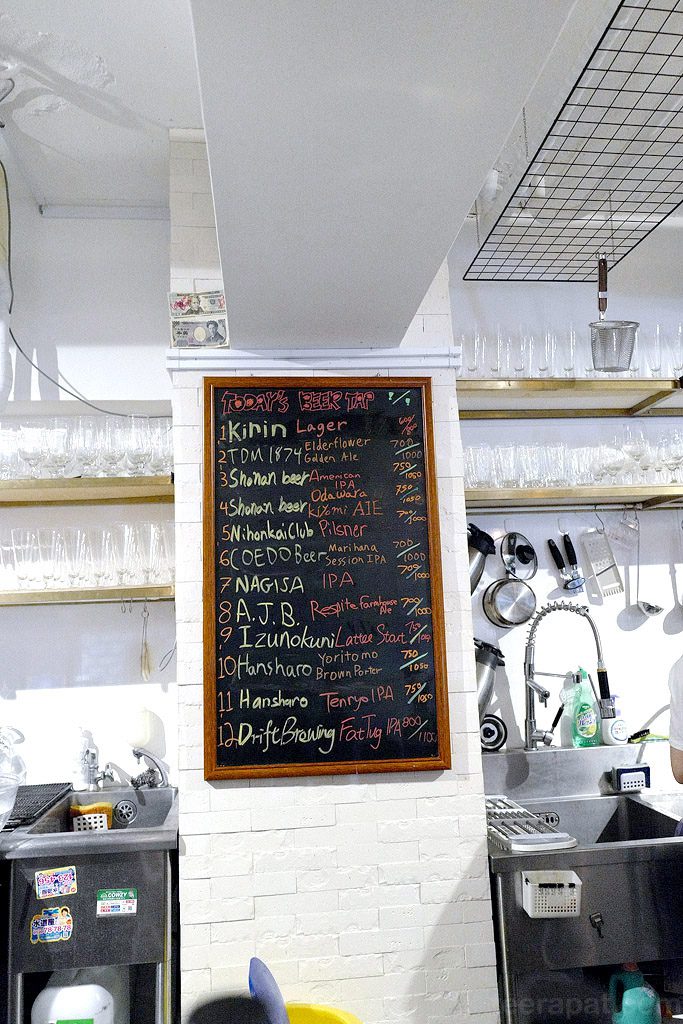 TODAY'S BEER TAP
1 Kirin Lager
2 TDM 1874 Elderflower Golden Ale 700/1000
3 Shonan beer American IPA 750/1050
4 Shonan beer Odawara Kiyomi AlE 750/1050
5 Nihonkai Club Pilsner 700/1000
6 COEDO Beer Marihana Session IPA 700/1000
7 NAGISA IPA 700/1000
8 A.J.B. Respite Farmhouse Ale 700/1000
9 Izunokuni Lattee Start
10 Hansharo Yoritomo Brown Porter 750/1050
11 Hansharo Tenryo IPA 750/1050
12 Drift Brewing Fat Tug IPA 800/1100
水道屋
78-78-78
eerapat.com